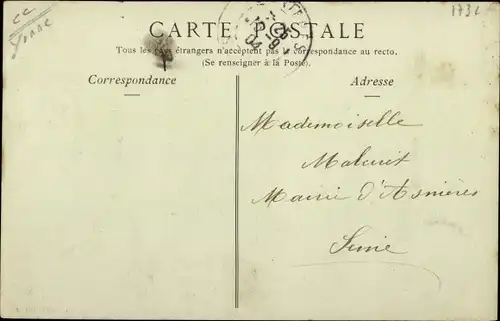 CC
Yonne
1731
CARTE POSTALE
Tous les pays étrangers n'acceptent pas la correspondance au recto.
(Se renseigner à la Poste).
Correspondance
Adresse
Mademoiselle
Mairie d'Asnières
Seine